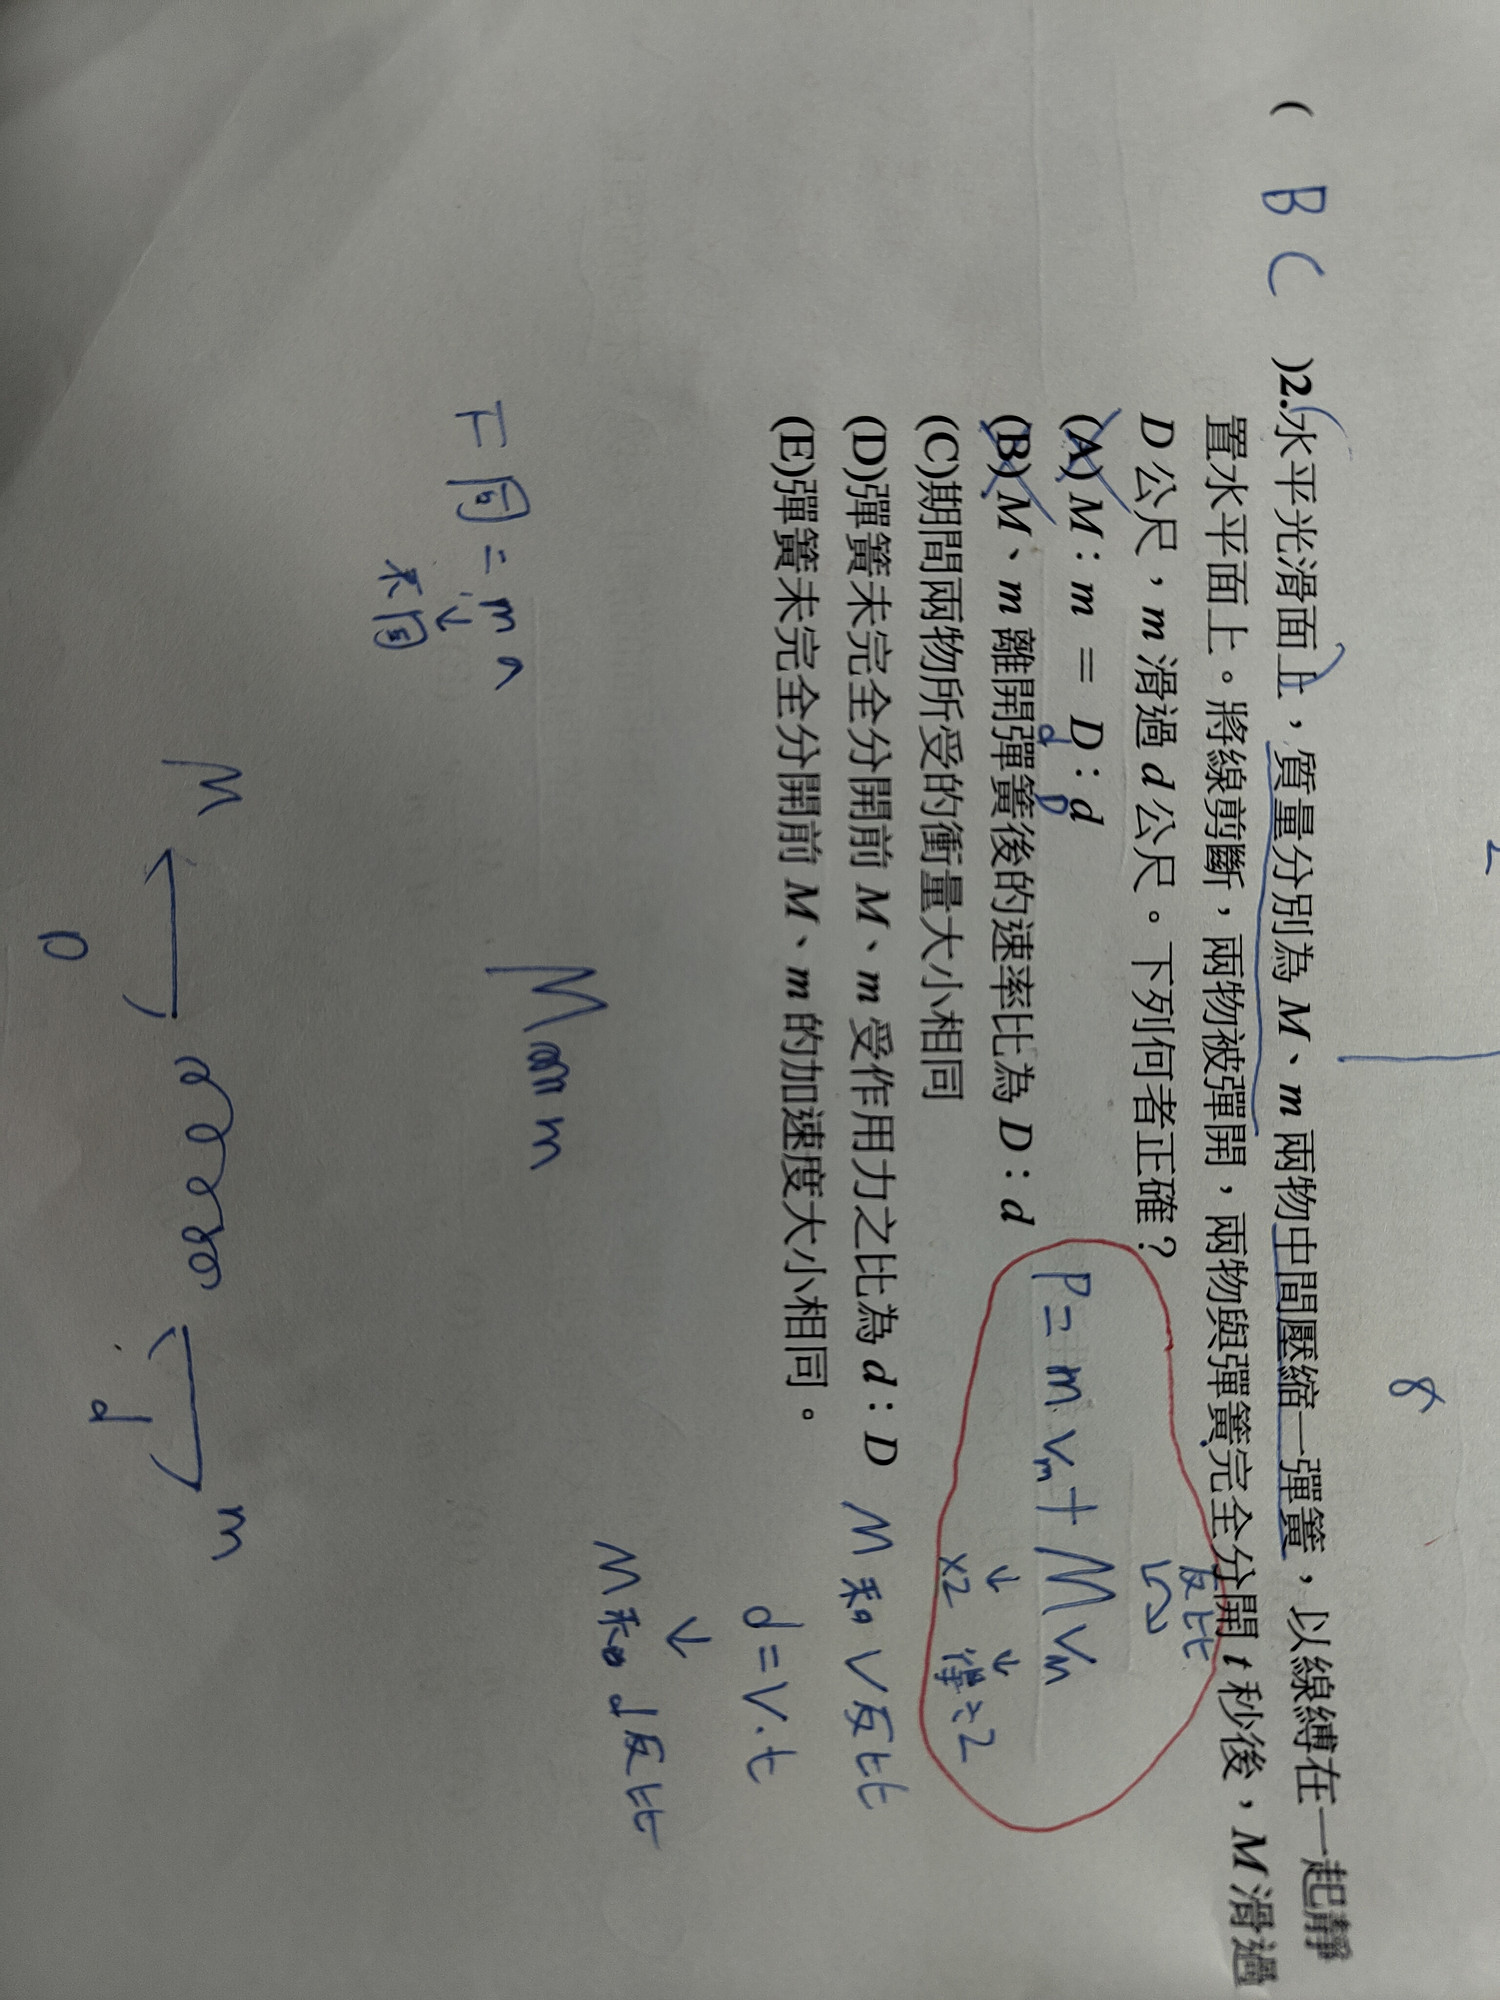 ( B C )2.水平光滑面上，質量分別為 M、m 兩物中間壓縮一彈簧，以線縛在一起靜
置水平面上。將線剪斷，兩物被彈開，兩物與彈簧完全分開 t 秒後，M 滑過
D 公尺，m 滑過 d 公尺。下列何者正確？
反比
(A) M : m = D : d
d D
P = m vm + M vM
↓ ↓
×2 得÷2
(B) M、m 離開彈簧後的速率比為 D : d
(C)期間兩物所受的衝量大小相同
(D)彈簧未完全分開前 M、m 受作用力之比為 d : D
M 和 V 反比
(E)彈簧未完全分開前 M、m 的加速度大小相同。
d = V · t
↓
M 和 d 反比
F 同 = m a
↓
不同
M m
M m
D d
8